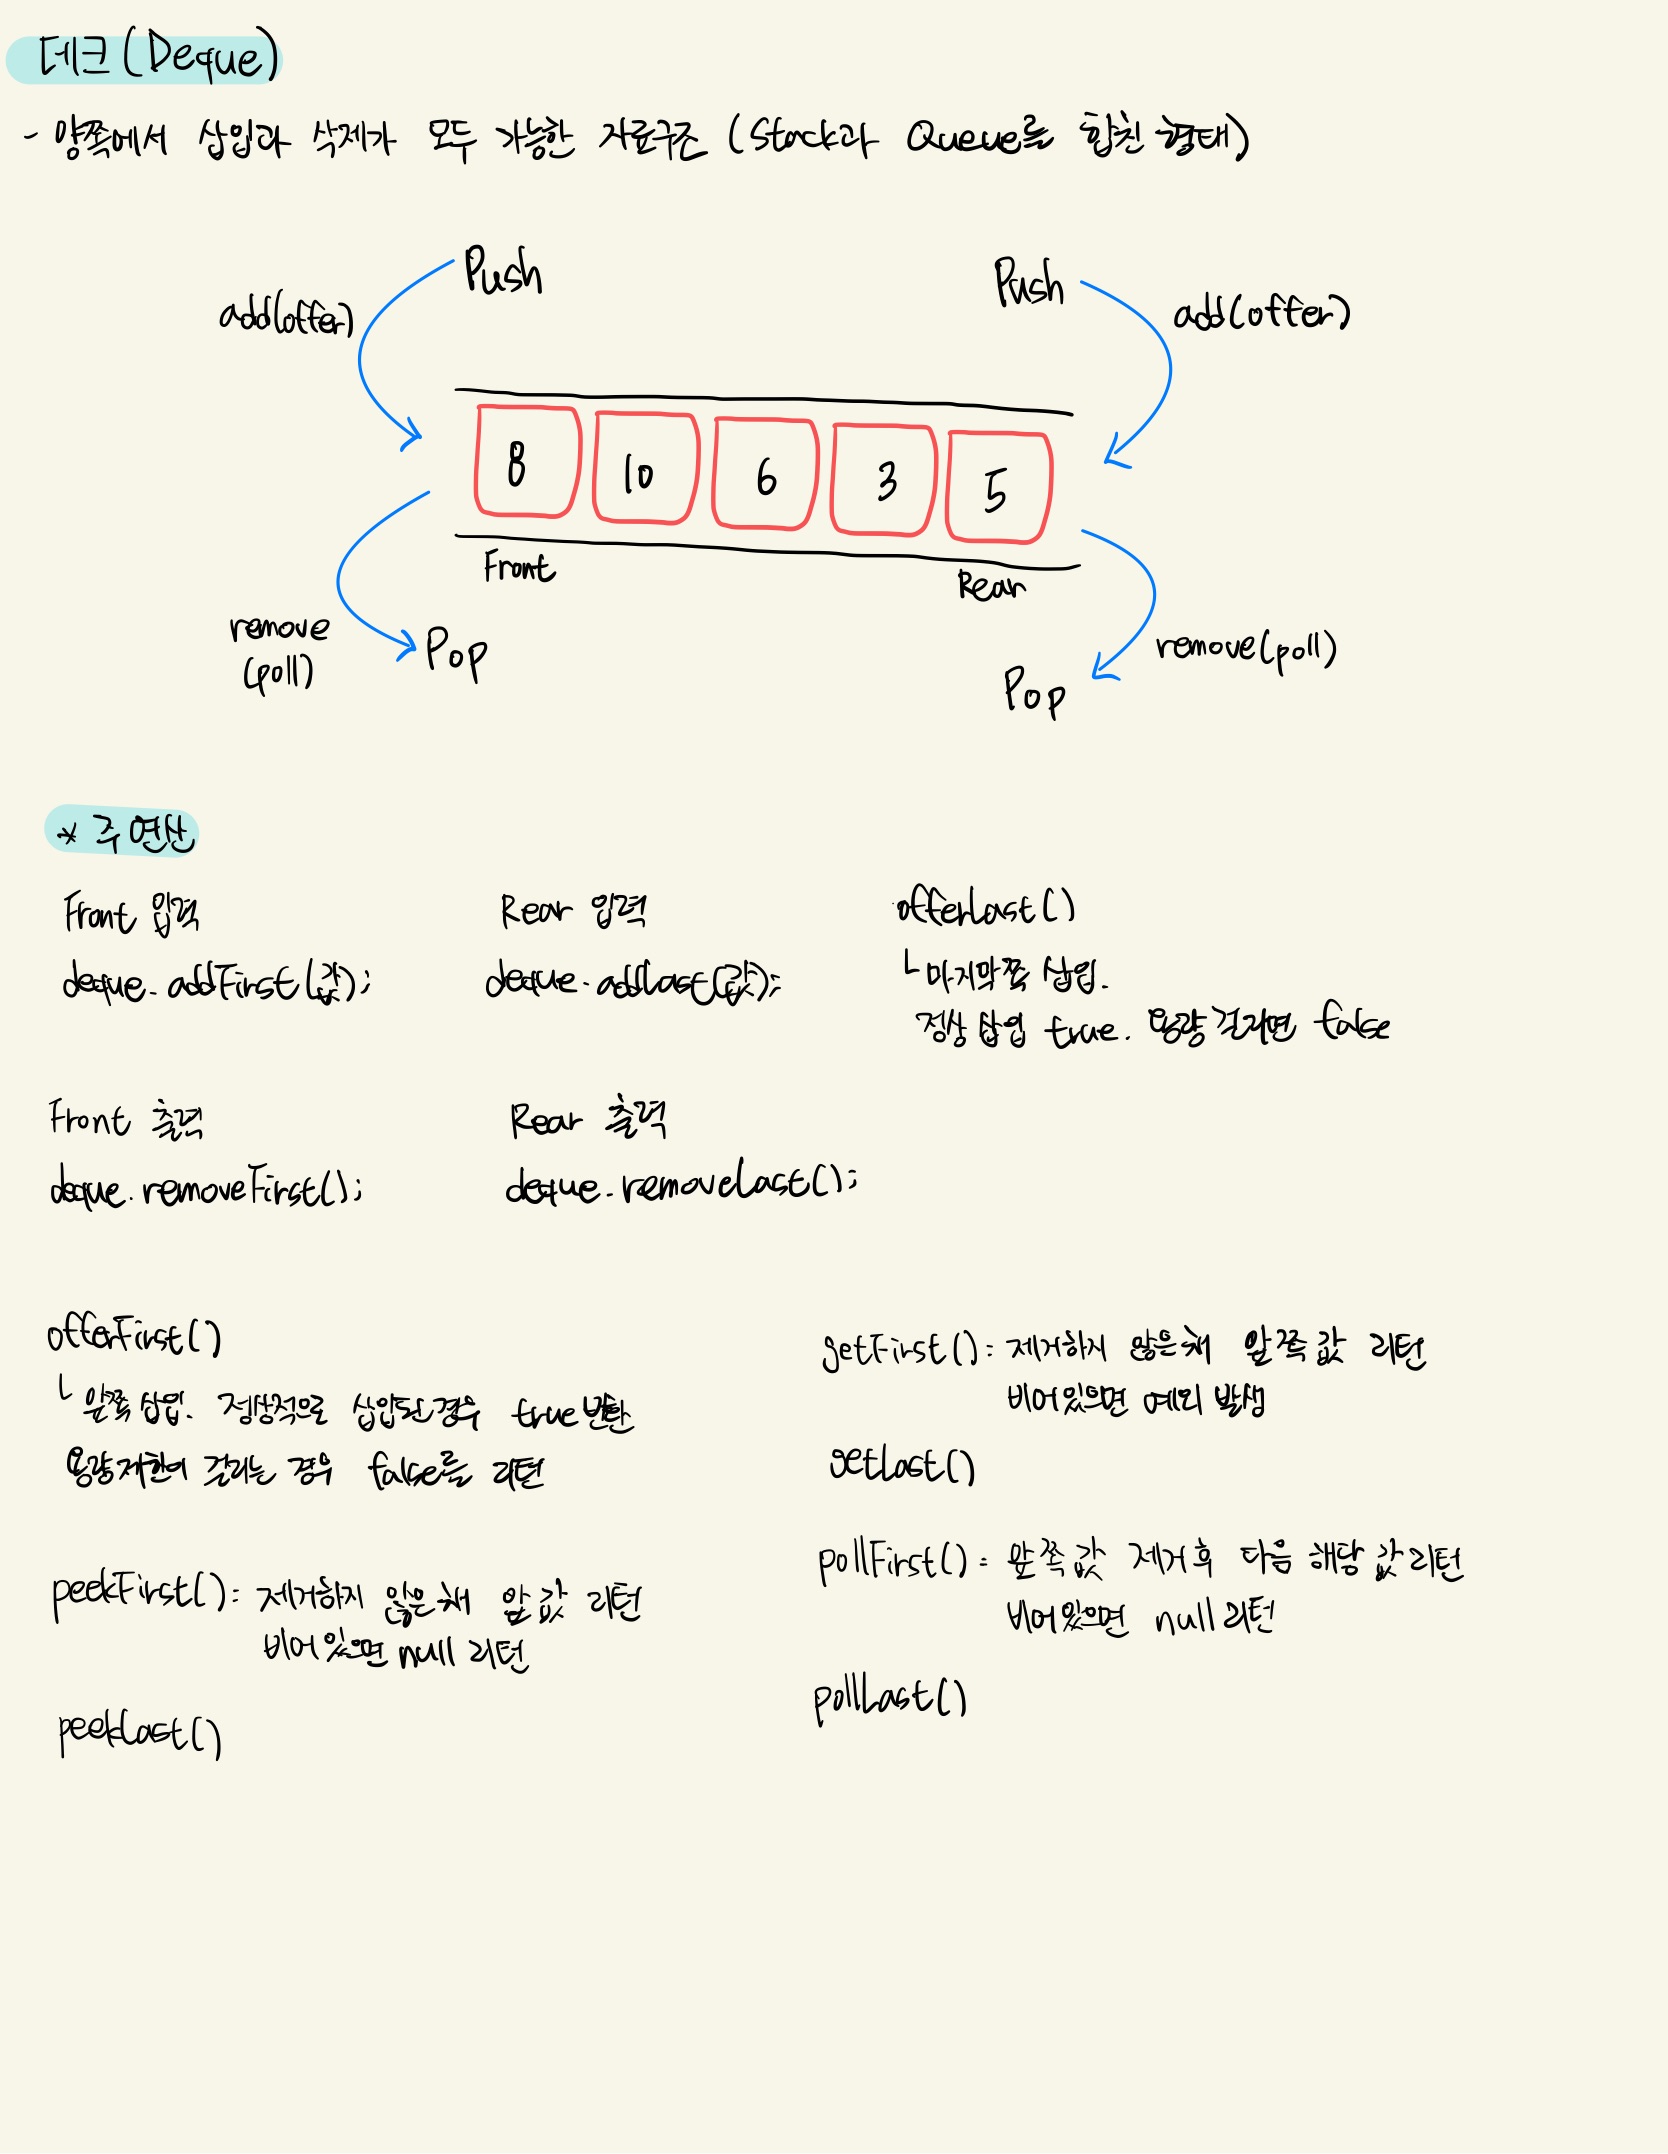 데크(Deque)
- 양쪽에서 삽입과 삭제가 모두 가능한 자료구조 (Stack과 Queue를 합친 형태)
Push
Push
add(offer)
add(offer)
8 10 6 3 5
Front
Rear
remove
(poll)
Pop
remove(poll)
Pop
* 주 연산
Front 입력
deque.addFirst(값);
Rear 입력
deque.addLast(값);
offerLast()
└ 마지막쪽 삽입.
정상 삽입 true. 용량 걸리면 false
Front 출력
deque.removeFirst();
Rear 출력
deque.removeLast();
offerFirst()
└ 앞쪽 삽입. 정상적으로 삽입된 경우 true 반환
용량제한에 걸리는 경우 false를 리턴
peekFirst() : 제거하지 않은채 앞 값 리턴
비어있으면 null 리턴
peekLast()
getFirst() : 제거하지 않은채 앞쪽 값 리턴
비어있으면 예외 발생
getLast()
pollFirst() : 앞쪽 값 제거 후 다음 해당 값 리턴
비어있으면 null 리턴
pollLast()